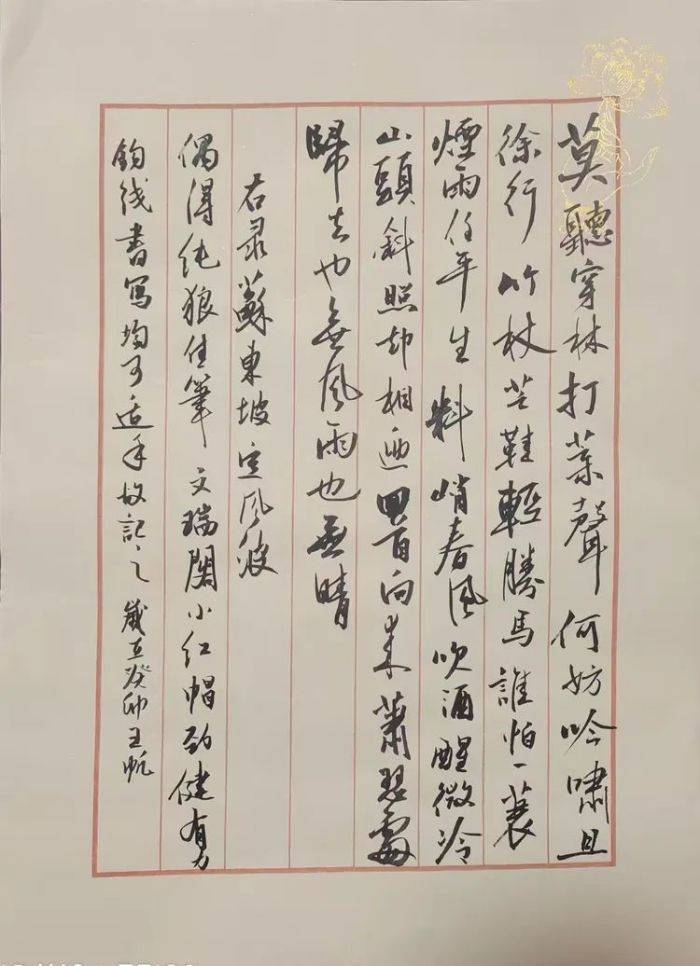 莫聽穿林打葉聲何妨吟嘯且
徐行竹杖芒鞋輕勝馬誰怕一蓑
煙雨任平生料峭春風吹酒醒微冷
山頭斜照却相迎回首向来蕭瑟處
歸去也無風雨也無晴
右录蘇東坡定风波
偶得纯狼佳筆文瑞閣小红帽劲健有力
鈎线書写均可适手故記之歲在癸卯王帆